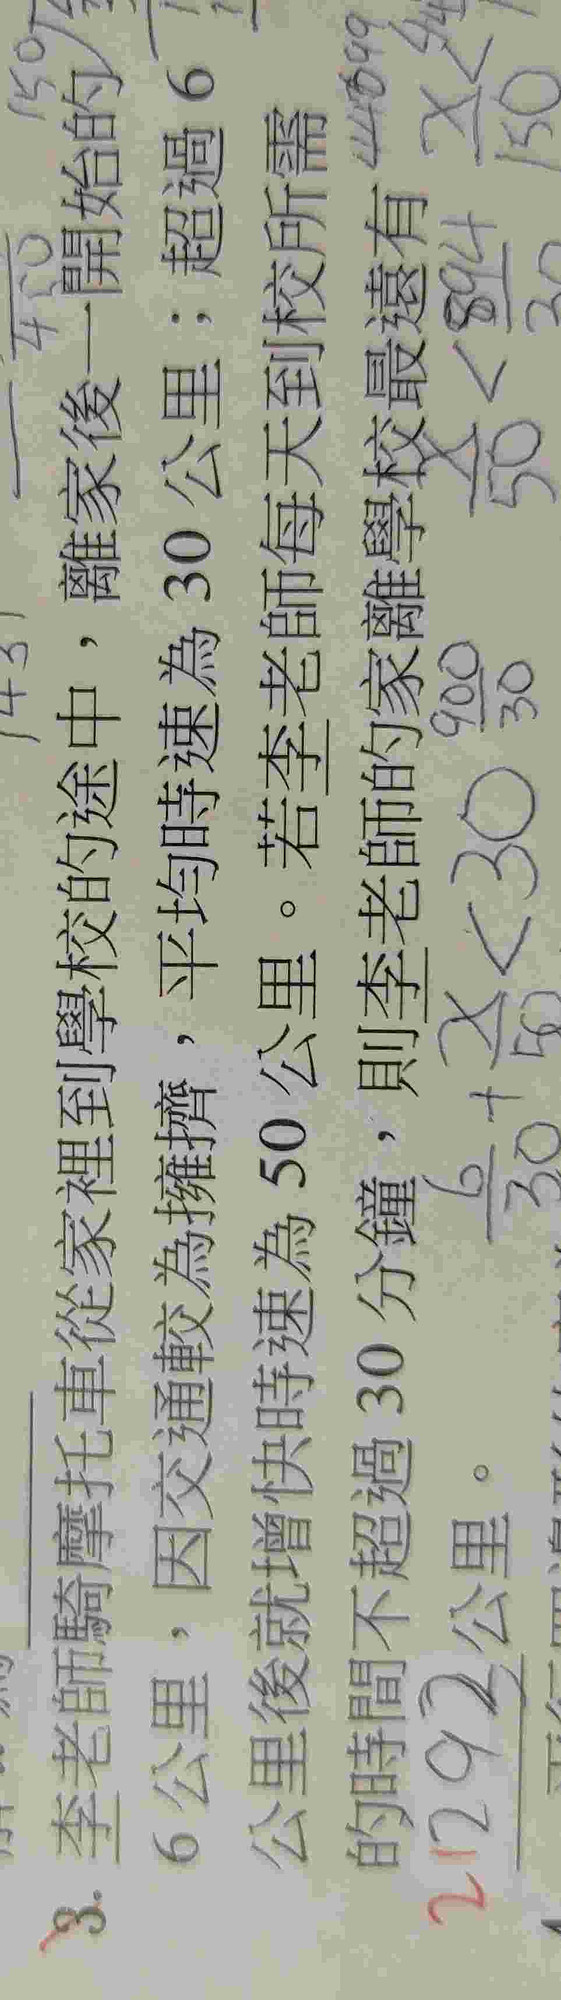 3. 李老師騎摩托車從家裡到學校的途中，離家後一開始的
6 公里，因交通較為擁擠，平均時速為 30 公里；超過 6
公里後就增快時速為 50 公里。若李老師每天到校所需
的時間不超過 30 分鐘，則李老師的家離學校最遠有
21292公里。
6/30 + x/50 < 30
900/30
x/50 < 894/30